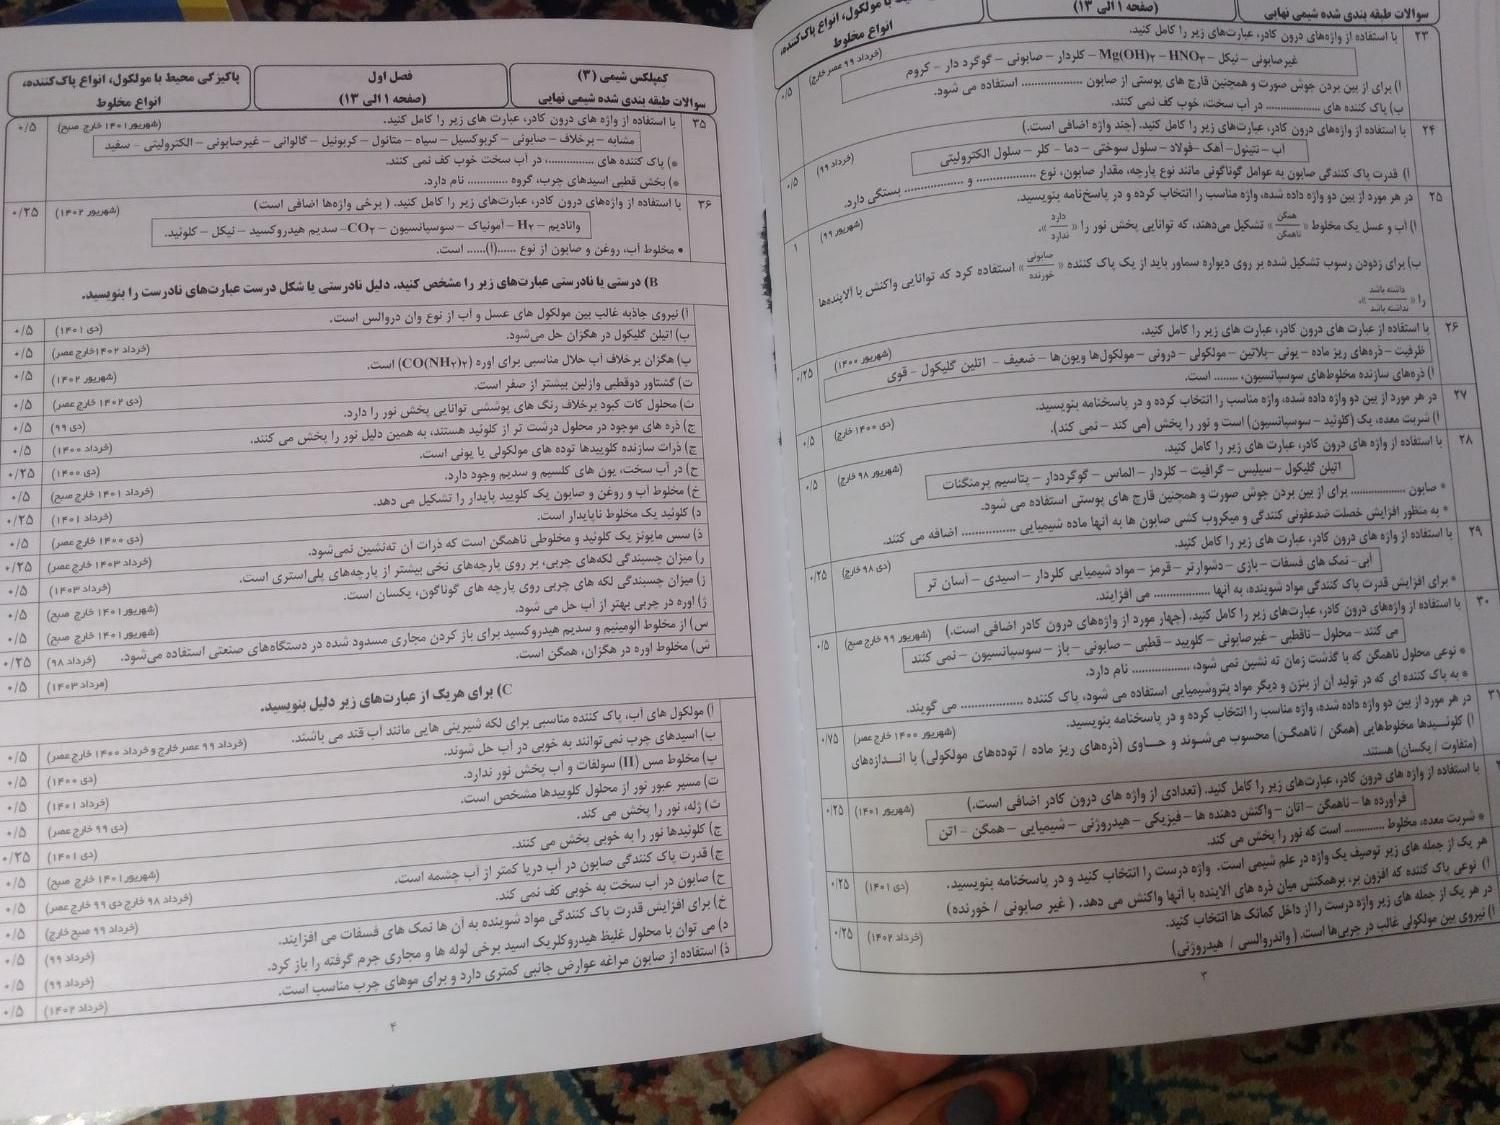 سوالات طبقه بندی شده شیمی نهایی
(صفحه ۱ الی ۱۳)
پاکیزگی محیط با مولکول، انواع پاک‌کننده،
انواع مخلوط
۲۳ با استفاده از واژه‌های درون کادر، عبارت‌های زیر را کامل کنید. (خرداد ۹۹ عصر خارج) ۰/۵
غیرصابونی – نیکل – HNO۳ – Mg(OH)۲ – کلردار – صابونی – گوگرد دار – کروم
ا) برای از بین بردن جوش صورت و همچنین قارچ های پوستی از صابون ................. استفاده می شود.
ب) پاک کننده های ................. در آب سخت، خوب کف نمی کنند.
۲۴ با استفاده از واژه‌های درون کادر، عبارت‌های زیر را کامل کنید. (چند واژه اضافی است.) (خرداد ۹۹) ۰/۵
آب – نتینول– آهک –فولاد – سلول سوختی – دما – کلر – سلول الکترولیتی
ا) قدرت پاک کنندگی صابون به عوامل گوناگونی مانند نوع پارچه، مقدار صابون، نوع ................. و ................. بستگی دارد.
۲۵ در هر مورد از بین دو واژه داده شده، واژه مناسب را انتخاب کرده و در پاسخ‌نامه بنویسید. (شهریور ۹۹) ۱
ا) آب و عسل یک مخلوط « همگن / ناهمگن » تشکیل می‌دهند، که توانایی پخش نور را « دارد / ندارد ».
ب) برای زدودن رسوب تشکیل شده بر روی دیواره سماور باید از یک پاک کننده « صابونی / خورنده » استفاده کرد که توانایی واکنش با آلاینده‌ها
را « داشته باشد / نداشته باشد ».
۲۶ با استفاده از عبارت های درون کادر، عبارت‌های زیر را کامل کنید. (شهریور ۱۴۰۰) ۰/۲۵
ظرفیت – ذره‌های ریز ماده – یونی –پلاتین – مولکولی – درونی – مولکول‌ها ویون‌ها – ضعیف – اتلین گلیکول – قوی
ا) ذره‌های سازنده مخلوط‌های سوسپانسیون، ......... است.
۲۷ در هر مورد از بین دو واژه داده شده، واژه مناسب را انتخاب کرده و در پاسخنامه بنویسید. (دی ۱۴۰۰ خارج) ۰/۵
ا) شربت معده، یک (کلوئید – سوسپانسیون) است و نور را پخش (می کند – نمی کند).
۲۸ با استفاده از واژه های درون کادر، عبارت های زیر را کامل کنید. (شهریور ۹۸ خارج) ۰/۵
اتیلن گلیکول – سیلیس – گرافیت – کلردار – الماس – گوگرددار – پتاسیم پرمنگنات
* صابون ................. برای از بین بردن جوش صورت و همچنین قارچ های پوستی استفاده می شود.
* به منظور افزایش خصلت ضدعفونی کنندگی و میکروب کشی صابون ها به آنها ماده شیمیایی ................. اضافه می کنند.
۲۹ با استفاده از واژه های درون کادر، عبارت های زیر را کامل کنید. (دی ۹۸ خارج) ۰/۲۵
آبی– نمک های فسفات – بازی – دشوارتر – قرمز – مواد شیمیایی کلردار – اسیدی – آسان تر
* برای افزایش قدرت پاک کنندگی مواد شوینده، به آنها ................. می افزایند.
۳۰ با استفاده از واژه‌های درون کادر، عبارت‌های زیر را کامل کنید. (چهار مورد از واژه‌های درون کادر اضافی است.) (شهریور ۹۹ خارج صبح) ۰/۵
می کنند – محلول – ناقطبی – غیرصابونی – کلویید – قطبی – صابونی – باز – سوسپانسیون – نمی کنند
* نوعی محلول ناهمگن که با گذشت زمان ته نشین نمی شود، ................. نام دارد.
* به پاک کننده ای که در تولید آن از بنزن و دیگر مواد پتروشیمیایی استفاده می شود، پاک کننده ................. می گویند.
۳۱ در هر مورد از بین دو واژه داده شده، واژه مناسب را انتخاب کرده و در پاسخنامه بنویسید. (شهریور ۱۴۰۰ خارج عصر) ۰/۷۵
ا) کلوئیدها مخلوط‌هایی (همگن / ناهمگن) محسوب می‌شوند و حاوی (ذره‌های ریز ماده / توده‌های مولکولی) با اندازه‌های
(متفاوت / یکسان) هستند.
با استفاده از واژه های درون کادر، عبارت‌های زیر را کامل کنید. (تعدادی از واژه های درون کادر اضافی است.) (شهریور ۱۴۰۱) ۰/۲۵
فرآورده ها – ناهمگن – اتان – واکنش دهنده ها – فیزیکی – هیدروژنی – شیمیایی – همگن – اتن
* شربت معده، مخلوط ............. است که نور را پخش می کند.
هر یک از جمله های زیر توصیف یک واژه در علم شیمی است. واژه درست را انتخاب کنید و در پاسخنامه بنویسید. (دی ۱۴۰۱) ۰/۲۵
ا) نوعی پاک کننده که افزون بر، برهمکنش میان ذره های آلاینده با آنها واکنش می دهد. ( غیر صابونی / خورنده)
در هر یک از جمله های زیر واژه درست را از داخل کمانک ها انتخاب کنید. (خرداد ۱۴۰۲) ۰/۲۵
ا) نیروی بین مولکولی غالب در چربی‌ها است. ( واندروالسی / هیدروژنی)
۳
کمپلکس شیمی (۳)
سوالات طبقه بندی شده شیمی نهایی
فصل اول
(صفحه ۱ الی ۱۳)
پاکیزگی محیط با مولکول، انواع پاک‌کننده،
انواع مخلوط
۳۵ با استفاده از واژه های درون کادر، عبارت های زیر را کامل کنید. (شهریور ۱۴۰۱ خارج صبح) ۰/۵
مشابه – برخلاف – صابونی – کربوکسیل – سیاه – متانول – کربونیل – گالوانی – غیرصابونی – الکترولیتی – سفید
*) پاک کننده های ..............، در آب سخت خوب کف نمی کنند.
*) بخش قطبی اسیدهای چرب، گروه ............ نام دارد.
۳۶ با استفاده از واژه‌های درون کادر، عبارت‌های زیر را کامل کنید. ( برخی واژه‌ها اضافی است) (شهریور ۱۴۰۲) ۰/۲۵
وانادیم – H۲ – آمونیاک – سوسپانسیون – CO۲ – سدیم هیدروکسید – نیکل – کلوئید.
• مخلوط آب، روغن و صابون از نوع ......(ا)...... است.
B) درستی یا نادرستی عبارت‌های زیر را مشخص کنید. دلیل نادرستی یا شکل درست عبارت‌های نادرست را بنویسید.
آ) نیروی جاذبه غالب بین مولکول های عسل و آب از نوع وان دروالس است. (دی ۱۴۰۱) ۰/۵
ب) اتیلن گلیکول در هگزان حل می‌شود. (خرداد ۱۴۰۲خارج عصر) ۰/۵
پ) هگزان برخلاف آب حلال مناسبی برای اوره (CO(NH۲)۲) است. (شهریور ۱۴۰۲) ۰/۵
ت) گشتاور دوقطبی وازلین بیشتر از صفر است. (دی ۱۴۰۲ خارج عصر) ۰/۵
ث) محلول کات کبود برخلاف رنگ های پوششی توانایی پخش نور را دارد. (دی ۹۹) ۰/۵
ج) ذره های موجود در محلول درشت تر از کلوئید هستند، به همین دلیل نور را پخش می کنند. (خرداد ۱۴۰۰) ۰/۵
چ) ذرات سازنده کلوییدها توده های مولکولی یا یونی است. (دی ۱۴۰۰) ۰/۲۵
ح) در آب سخت، یون های کلسیم و سدیم وجود دارد. (خرداد ۱۴۰۱ خارج صبح) ۰/۵
خ) مخلوط آب و روغن و صابون یک کلویید پایدار را تشکیل می دهد. (خرداد ۱۴۰۱) ۰/۲۵
د) کلوئید یک مخلوط ناپایدار است. (دی ۱۴۰۰ خارج عصر) ۰/۵
ذ) سس مایونز یک کلوئید و مخلوطی ناهمگن است که ذرات آن ته‌نشین نمی‌شود. (خرداد ۱۴۰۳ خارج عصر) ۰/۲۵
ر) میزان چسبندگی لکه‌های چربی، بر روی پارچه‌های نخی بیشتر از پارچه‌های پلی‌استری است. (خرداد ۱۴۰۳) ۰/۵
ز) میزان چسبندگی لکه های چربی روی پارچه های گوناگون، یکسان است. (شهریور ۱۴۰۱ خارج صبح) ۰/۵
ژ) اوره در چربی بهتر از آب حل می شود. (شهریور ۱۴۰۱ خارج صبح) ۰/۵
س) از مخلوط آلومینیم و سدیم هیدروکسید برای باز کردن مجاری مسدود شده در دستگاه‌های صنعتی استفاده می‌شود. (خرداد ۹۸) ۰/۲۵
ش) مخلوط اوره در هگزان، همگن است. (مرداد ۱۴۰۳) ۰/۵
C) برای هریک از عبارت‌های زیر دلیل بنویسید.
ا) مولکول های آب، پاک کننده مناسبی برای لکه شیرینی هایی مانند آب قند می باشند. (خرداد ۹۹ عصر خارج و خرداد ۱۴۰۰ خارج عصر) ۰/۵
ب) اسیدهای چرب نمی‌توانند به خوبی در آب حل شوند. (دی ۱۴۰۰) ۰/۵
پ) مخلوط مس (II) سولفات و آب پخش نور ندارد. (خرداد ۱۴۰۱) ۰/۵
ت) مسیر عبور نور از محلول کلوییدها مشخص است. (دی ۹۹ خارج عصر) ۰/۵
ث) ژله، نور را پخش می کند. (دی ۱۴۰۱) ۰/۲۵
ج) کلوئیدها نور را به خوبی پخش می کنند. (شهریور۱۴۰۱ خارج صبح) ۰/۵
چ) قدرت پاک کنندگی صابون در آب دریا کمتر از آب چشمه است. (خرداد ۹۸ خارج دی ۹۹ خارج عصر) ۰/۵
ح) صابون در آب سخت به خوبی کف نمی کند. (خرداد ۹۹ صبح خارج) ۰/۵
خ) برای افزایش قدرت پاک کنندگی مواد شوینده به آن ها نمک های فسفات می افزایند. (خرداد ۹۹) ۰/۵
د) می توان با محلول غلیظ هیدروکلریک اسید برخی لوله ها و مجاری جرم گرفته را باز کرد. (خرداد ۹۹) ۰/۵
ذ) استفاده از صابون مراغه عوارض جانبی کمتری دارد و برای موهای چرب مناسب است. (خرداد ۱۴۰۲) ۰/۵
۴